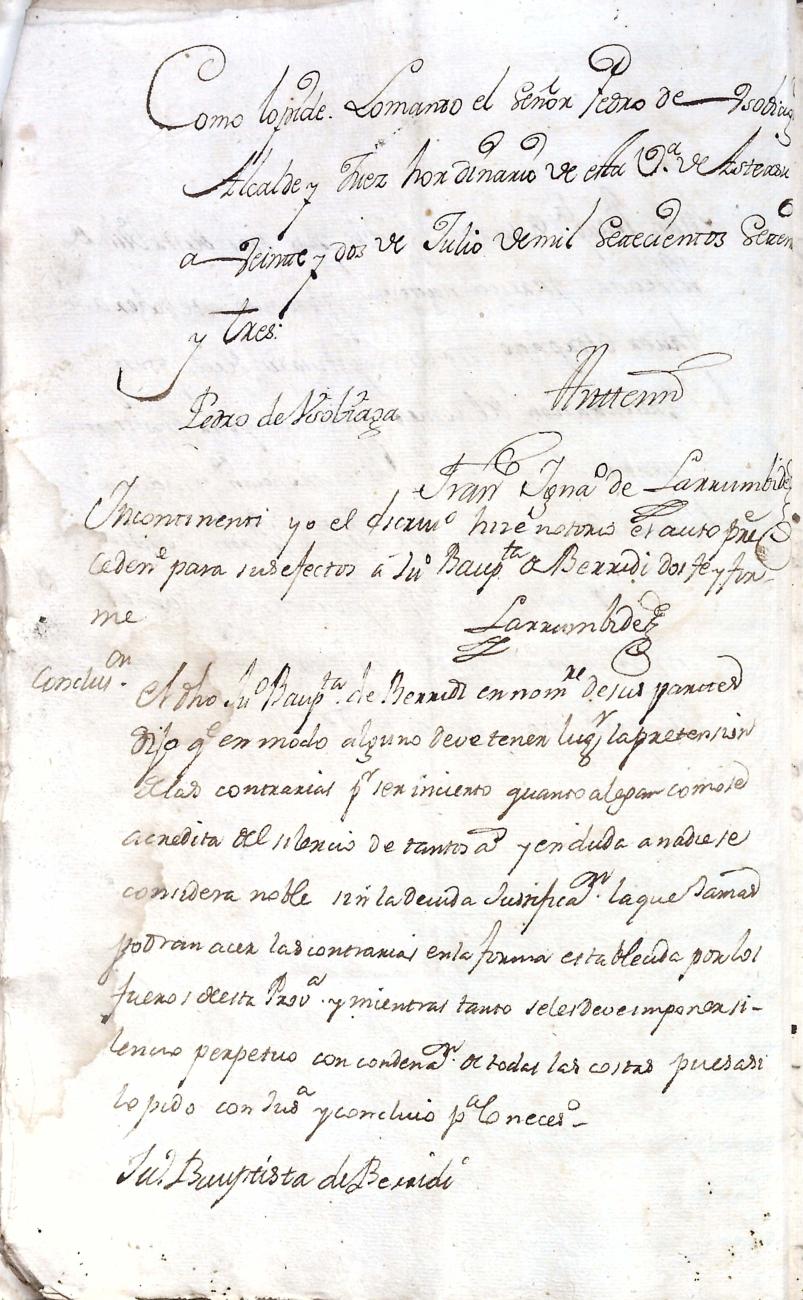 Como lo pide. Lo mando el señor Pedro de Ysobiaga
Alcalde y Juez hordinario de esta V.ª de Asteasu
a Veinte y dos de Julio de mil Setecientos Seten
y tres:
Pedro de Ysobiaga Anttemi
Fran Igna.º de Larrumbide
Incontinenti yo el escriv.º hize notorio el auto pre
ceden.e para sus efectos â Ju.º Baup.ta de Berridi doi fe y fir-
me
Larrumbide
Conclus.on
El dho Ju.º Baup.ta de Berridi en nom.re de sus partes
Dijo q.e en modo alguno deve tener lug.r la pretension
de las contrarias p.r ser incierto quanto alegan como se
acredita del silencio de tantos a.s y en duda a nadie se
considera noble sin la devida Justifica.on la que Jamas
podran acer las contrarias en la forma establecida por los
fueros de esta Prov.a y mientras tanto seles deve imponer si-
lencio perpetuo con condena.on de todas las costas pues asi
lo pido con Jus.a y concluio p.a lo neces.o
Ju.º Bauptista de Berridi